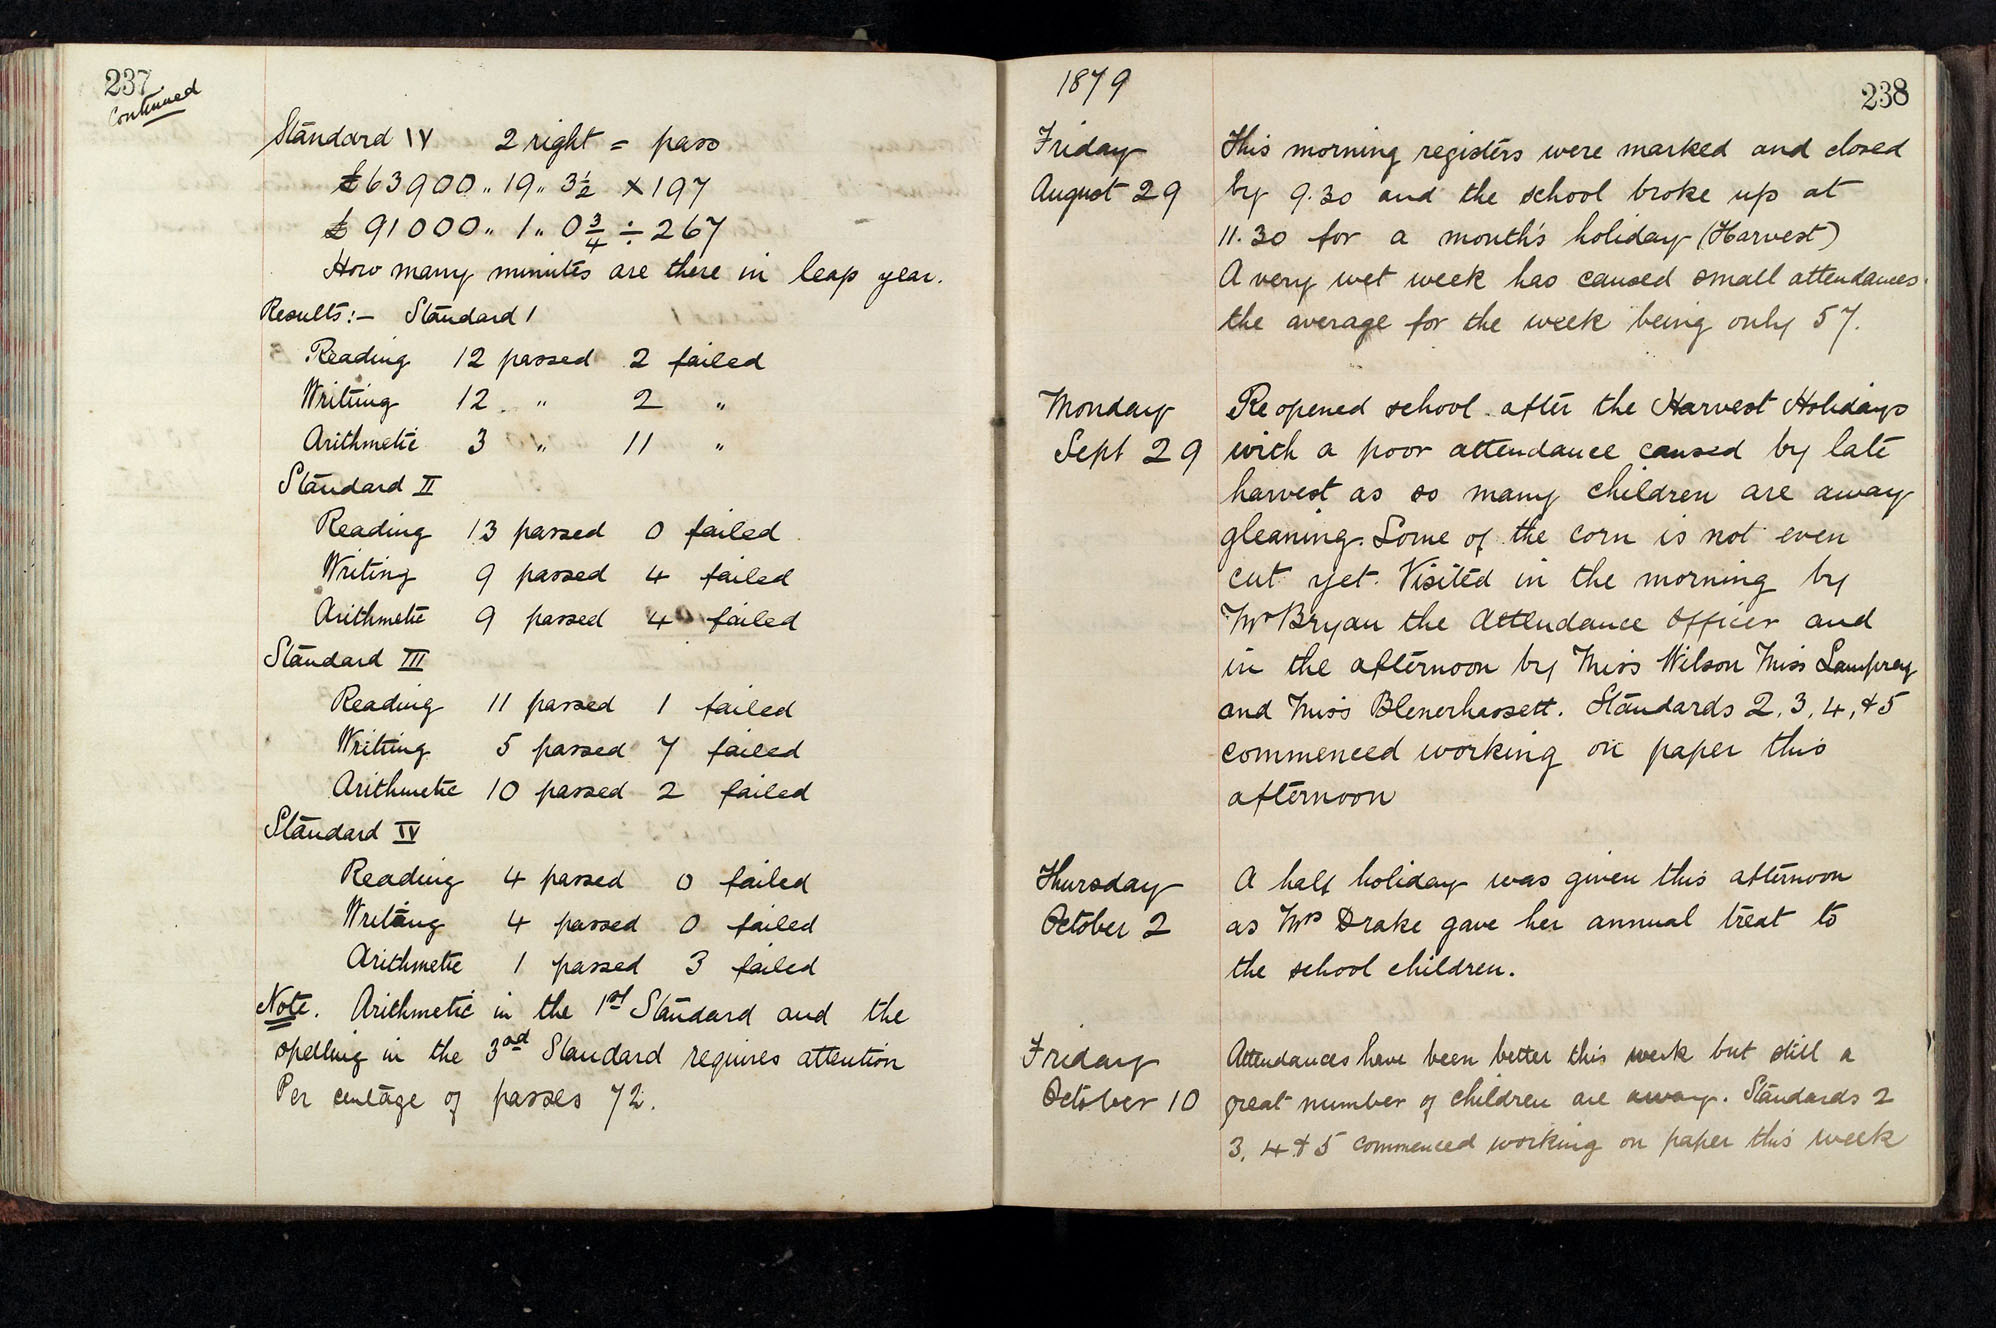 237
Continued
Standard IV 2 right = pass
£63900 ,, 19 ,, 3½ × 197
£91000 ,, 1 ,, 0¾ ÷ 267
How many minutes are there in leap year.
Results:- Standard 1
Reading 12 passed 2 failed
Writing 12 " 2 "
Arithmetic 3 " 11 "
Standard II
Reading 13 passed 0 failed
Writing 9 passed 4 failed
Arithmetic 9 passed 4 failed
Standard III
Reading 11 passed 1 failed
Writing 5 passed 7 failed
Arithmetic 10 passed 2 failed
Standard IV
Reading 4 passed 0 failed
Writing 4 passed 0 failed
Arithmetic 1 passed 3 failed
Note. Arithmetic in the 1st Standard and the
spelling in the 3rd Standard requires attention
Per centage of passes 72.
1879
238
Friday
August 29
This morning registers were marked and closed
by 9.30 and the school broke up at
11.30 for a month's holiday (Harvest)
A very wet week has caused small attendances.
the average for the week being only 57.
Monday
Sept 29
Reopened school after the Harvest Holidays
with a poor attendance caused by late
harvest as so many children are away
gleaning. Some of the corn is not even
cut yet. Visited in the morning by
Mr Bryan the Attendance Officer and
in the afternoon by Miss Wilson Miss Lamprey
and Miss Blenerhassett. Standards 2, 3, 4, & 5
commenced working on paper this
afternoon
Thursday
October 2
A half holiday was given this afternoon
as Mrs Drake gave her annual treat to
the school children.
Friday
October 10
Attendances have been better this week but still a
great number of children are away. Standards 2
3, 4 & 5 commenced working on paper this week